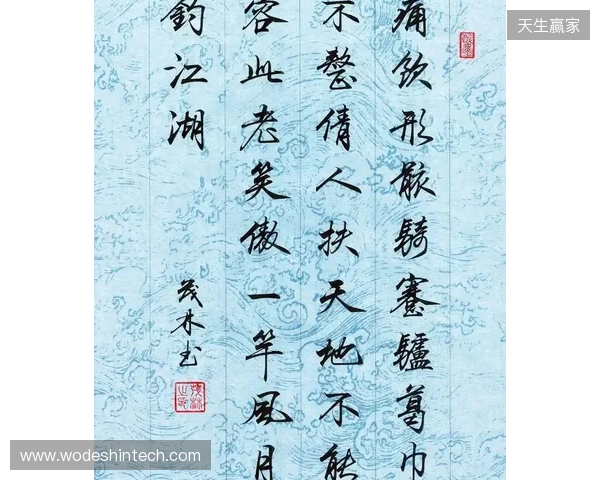 痛飲形骸騎蹇驢葛巾
不整倩人扶天地不能
容此老笑傲一竿風月
釣江湖
茂林书
天生赢家
www.wodeshintech.com